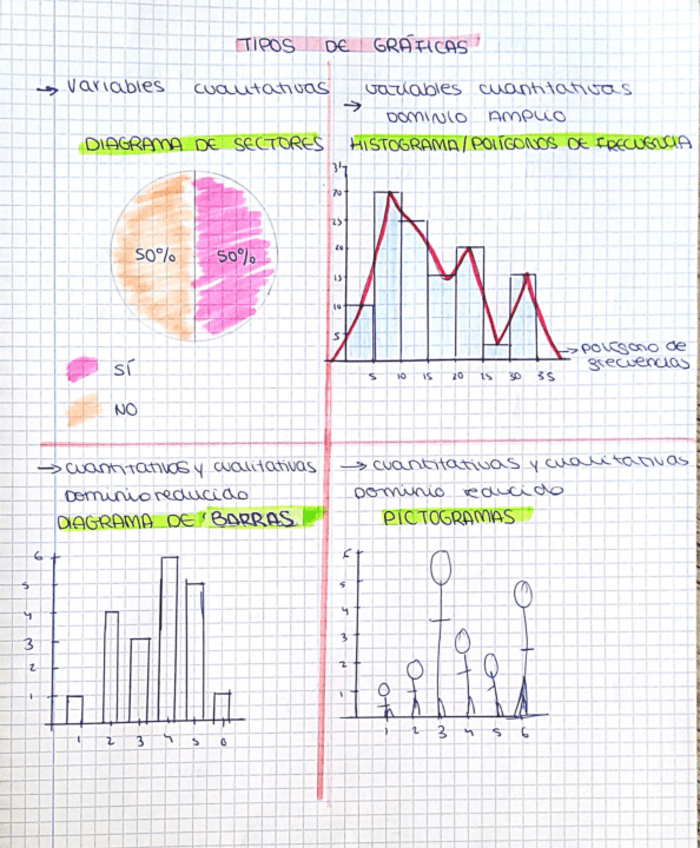 TIPOS DE GRÁFICAS
→ Variables cualitativas
DIAGRAMA DE SECTORES
50% 50%
SÍ
NO
→ variables cuantitativas
DOMINIO AMPLIO
HISTOGRAMA/POLÍGONOS DE FRECUENCIA
25
20
15
10
5
5 10 15 20 25 30 35
→ polígono de
frecuencias
→ cuantitativos y cualitativas
Dominio reducido
DIAGRAMA DE BARRAS
6
5
4
3
2
1
1 2 3 4 5 6
→ cuantitativas y cualitativas
Dominio reducido
PICTOGRAMAS
6
5
4
3
2
1
1 2 3 4 5 6